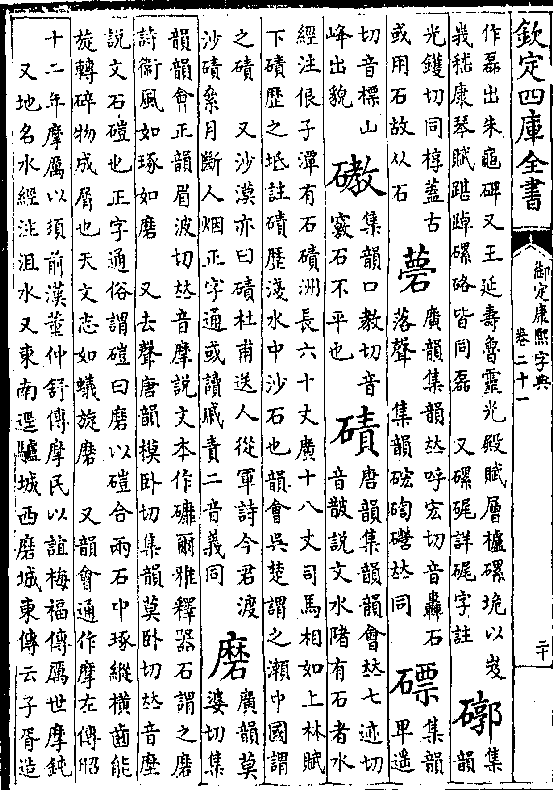 欽定四庫全書
御定康熙字典
卷二十一
二十
作磊出朱龜碑又王延壽魯靈光殿賦層櫨磥垝以岌
峩嵇康琴賦踸踔磥硌皆同磊 又磥硊詳硊字註
𥕖
集
韻
光鑊切同椁蓋古
或用石故从石
䃔
廣韻集韻𠀤呼宏切音轟石
落聲 集韻硡砲礐𠀤同
磦
集韻
卑遥
切音標山
峰出貌
磝
集韻口教切音
竅石不平也
磧
唐韻集韻韻會𠀤七迹切
音皵說文水陼有石者水
經注佷子潭有石磧洲長六十丈廣十八丈司馬相如上林賦
下磧歷之坻註磧歷淺水中沙石也韻會吳楚謂之瀨中國謂
之磧 又沙漠亦曰磧杜甫送人從軍詩今君渡
沙磧累月斷人烟正字通或讀戚責二音義同
磨
廣韻莫
婆切集
韻韻會正韻眉波切𠀤音摩說文本作䃺爾雅釋器石謂之磨
詩衞風如琢如磨 又去聲唐韻模卧切集韻莫卧切𠀤音塺
說文石磑也正字通俗謂磑曰磨以磑合兩石中琢縱横齒能
旋轉碎物成屑也天文志如蟻旋磨 又韻會通作摩左傳昭
十二年摩厲以須前漢董仲舒傳摩民以誼梅福傳厲世摩鈍
又地名水經注沮水又東南逕驢城西磨城東傳云子胥造